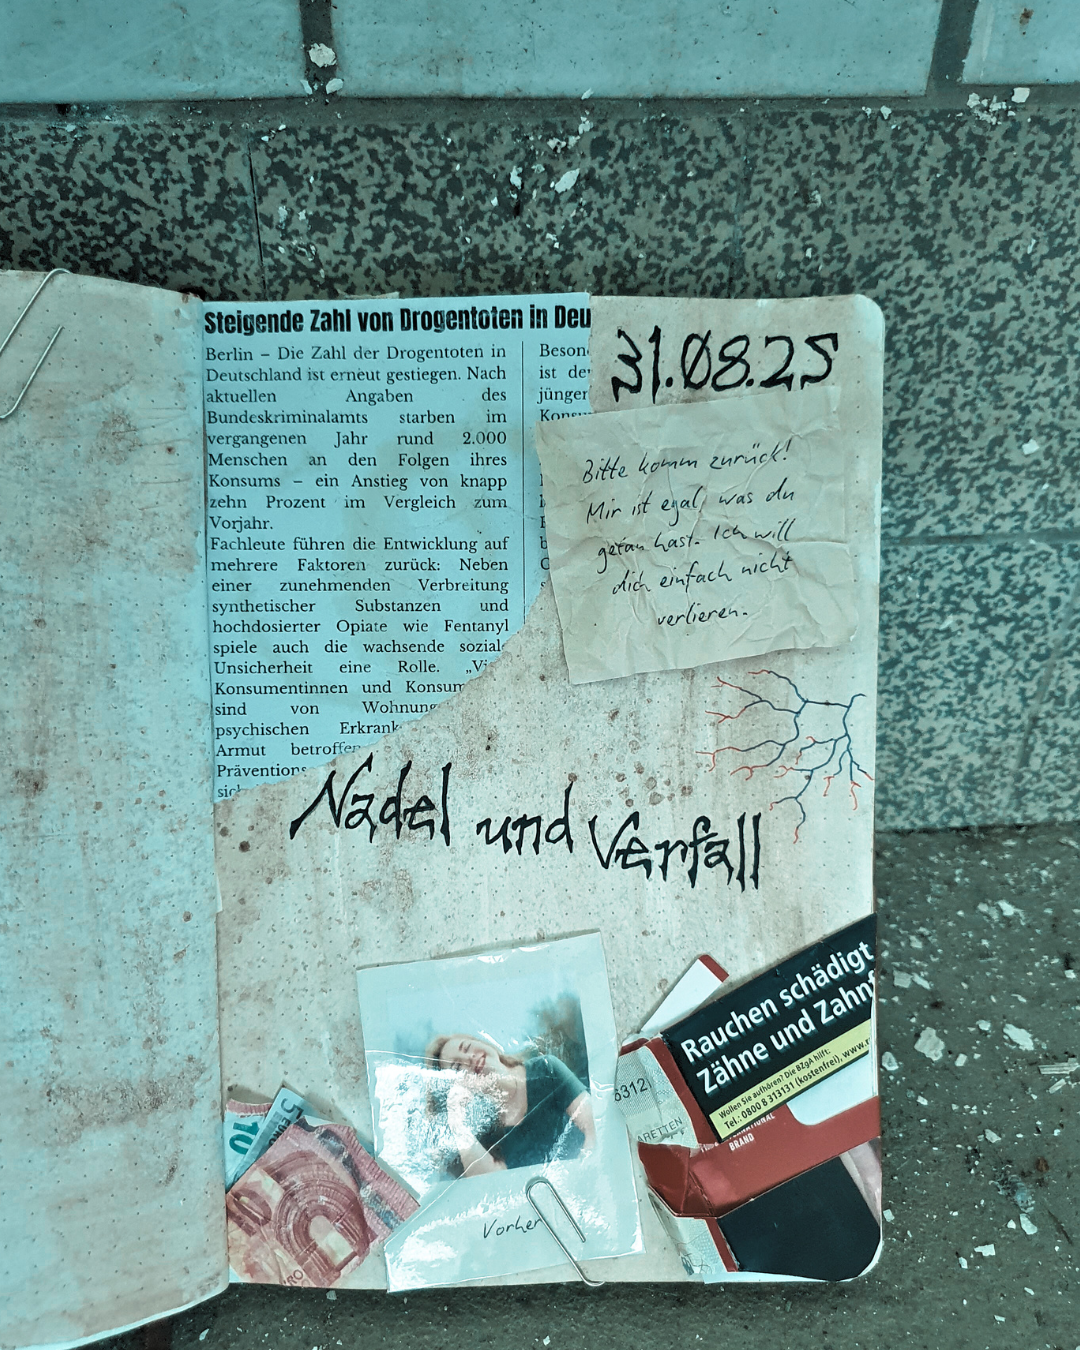 Steigende Zahl von Drogentoten in Deu
Berlin – Die Zahl der Drogentoten in
Deutschland ist erneut gestiegen. Nach
aktuellen Angaben des
Bundeskriminalamts starben im
vergangenen Jahr rund 2.000
Menschen an den Folgen ihres
Konsums – ein Anstieg von knapp
zehn Prozent im Vergleich zum
Vorjahr.
Fachleute führen die Entwicklung auf
mehrere Faktoren zurück: Neben
einer zunehmenden Verbreitung
synthetischer Substanzen und
hochdosierter Opiate wie Fentanyl
spiele auch die wachsende soziale
Unsicherheit eine Rolle. „Vi
Konsumentinnen und Konsum
sind von Wohnung
psychischen Erkrank
Armut betroffen
Präventions
sic
Beson
ist de
jünger
Konsu
31.08.25
Bitte komm zurück!
Mir ist egal, was du
getan hast. Ich will
dich einfach nicht
verlieren.
Nadel und Verfall
Vorher
10
5
Rauchen schädigt
Zähne und Zahnf
Wollen Sie aufhören? Die BZgA hilft:
Tel.: 0800 8 313131 (kostenfrei), www.r
6312
ARETTEN
BRAND